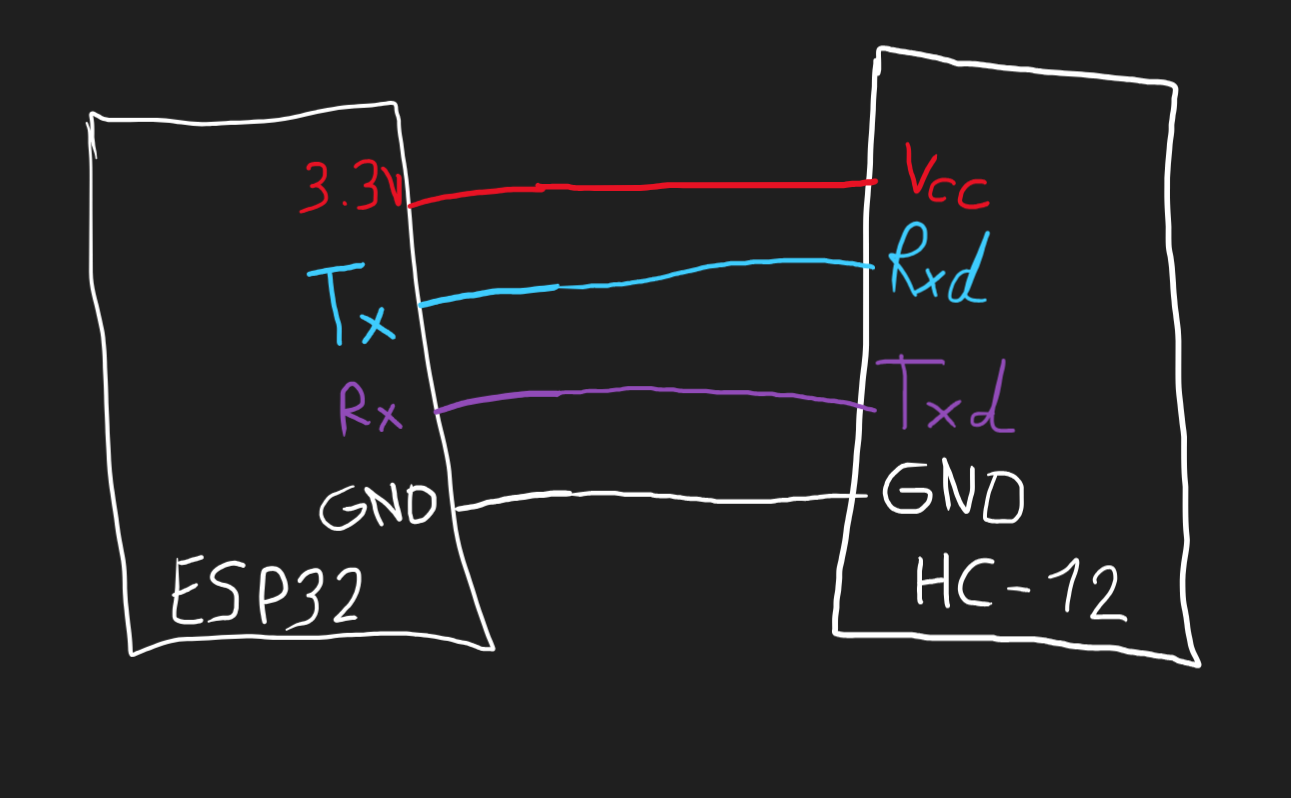 3.3V
Tx
Rx
GND
ESP32
Vcc
Rxd
Txd
GND
HC-12